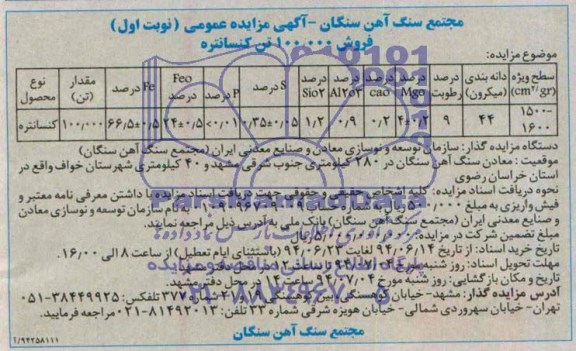 مجتمع سنگ آهن سنگان -آگهی مزایده عمومی (نوبت اول)
فروش ۱۰۰,۰۰۰ تن کنسانتره
موضوع مزایده:
نوع محصول | مقدار (تن) | Fe درصد | Feo درصد | P درصد | S درصد | درصد Sio۲ | درصد Al۲o۳ | درصد cao | درصد Mgo | درصد رطوبت | دانه بندی (میکرون) | سطح ویژه (cm²/gr)
کنسانتره | ۱۰۰,۰۰۰ | ۶۶,۵±۰,۵ | ۲۴±۰,۵ | <۰,۰۱ | ۰,۳۵±۰,۰۵ | ۱,۲ | ۰,۹ | ۰,۲ | ۹ | ۴۴ | ۱۵۰۰-۱۶۰۰
دستگاه مزایده گذار: سازمان توسعه و نوسازی معادن و صنایع معدنی ایران (مجتمع سنگ آهن سنگان)
موقعیت: معادن سنگ آهن سنگان در ۲۸۰ کیلومتری جنوب شرقی مشهد و ۴۰ کیلومتری شهرستان خواف واقع در
استان خراسان رضوی
نحوه دریافت اسناد مزایده: کلیه اشخاص حقیقی و حقوقی جهت دریافت اسناد مزایده با داشتن معرفی نامه معتبر و
فیش واریزی به مبلغ ریال به نام سازمان توسعه و نوسازی معادن
و صنایع معدنی ایران (مجتمع سنگ آهن سنگان) بانک ملی به آدرس ذیل مراجعه نمایند.
مبلغ تضمین شرکت در مزایده: ریال
تاریخ خرید اسناد: از تاریخ ۹۴/۰۶/۱۴ لغایت ۹۴/۰۶/۲۳ (باستثنای ایام تعطیل) از ساعت ۸ الی ۱۶,۰۰
مهلت تحویل اسناد: روز شنبه مورخ تا ساعت ۱۲ در محل دفتر مشهد.
تاریخ و مکان بازگشایی: روز شنبه مورخ ۹۴/۰۷/۰۴ ساعت در محل دفتر مشهد.
آدرس مزایده گذار: مشهد- خیابان کوهسنگی- بین کوهسنگی شماره ۳۷۷ تلفکس: ۳۸۴۴۹۹۲۵-۰۵۱
تهران- خیابان سهروردی شمالی- خیابان هویزه شرقی شماره ۳۳ تلفن: ۸۱۴۹۲۰۱۳-۰۲۱ مراجعه فرمایید.
مجتمع سنگ آهن سنگان
۹۴۲۵۸۱۱۱/آ
ParsNamadData